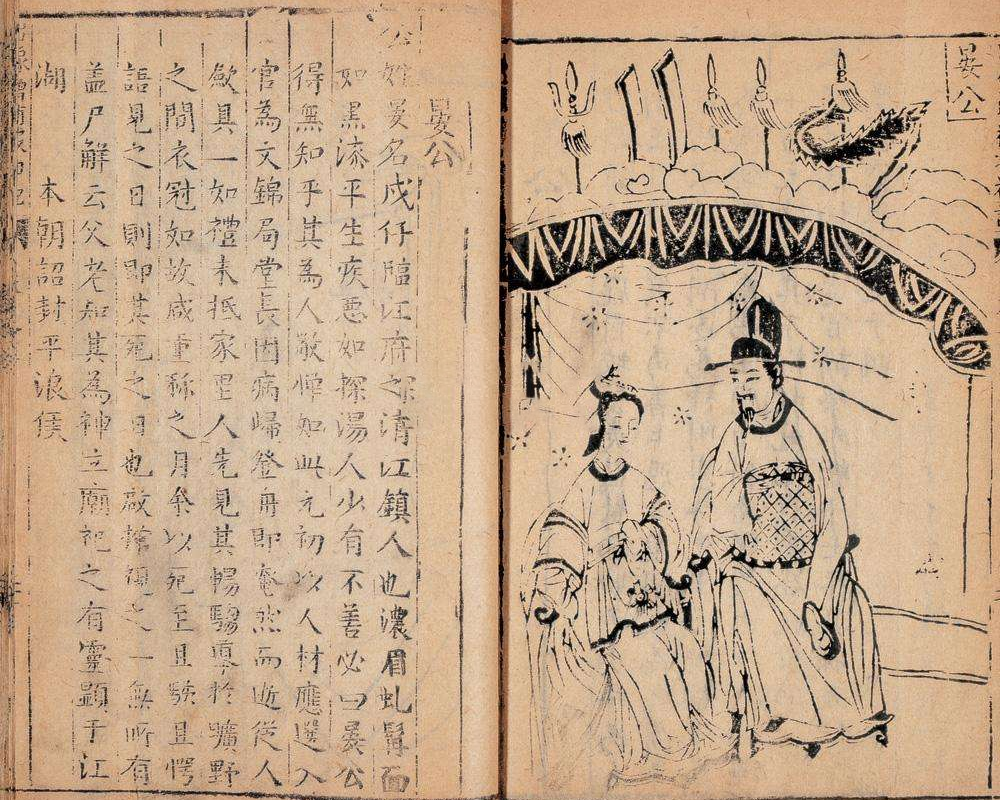 晏公
晏公
公姓晏名戍仔臨江府之清江鎮人也濃眉虬髯面
如黑漆平生疾惡如探湯人少有不善必曰晏公
得無知乎其為人敬憚如此元初以人材應選入
官為文錦局堂長因病歸登舟即奄然而逝從人
歛具一如禮未抵家里人先見其暢騶導於曠野
之間衣冠如故咸重稱之月余以死至且駭且愕
語見之日則即其死之日也啟棺視之一無所有
盖尸觧云父老知其為神立廟祀之有靈顯于江
湖 本朝詔封平浪侯